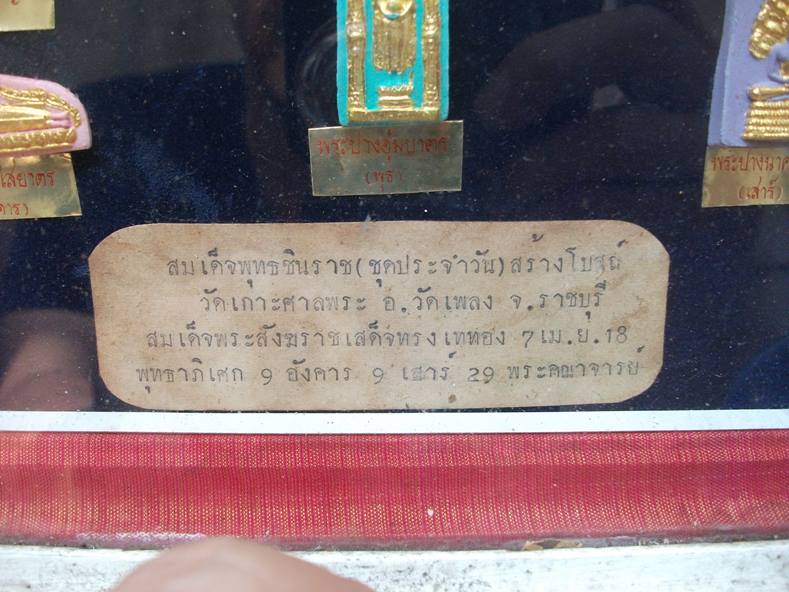 พระปางอุ้มบาตร
(พุธ)
(เสาร์)
สมเด็จพุทธชินราช(ชุดประจำวัน)สร้างโบสถ์
วัดเกาะศาลพระ อ.วัดเพลง จ.ราชบุรี
สมเด็จพระสังฆราชเสด็จทรงเททอง 7 เม.ย.18
พุทธาภิเศก 9 อังคาร 9 เสาร์ 29 พระคณาจารย์